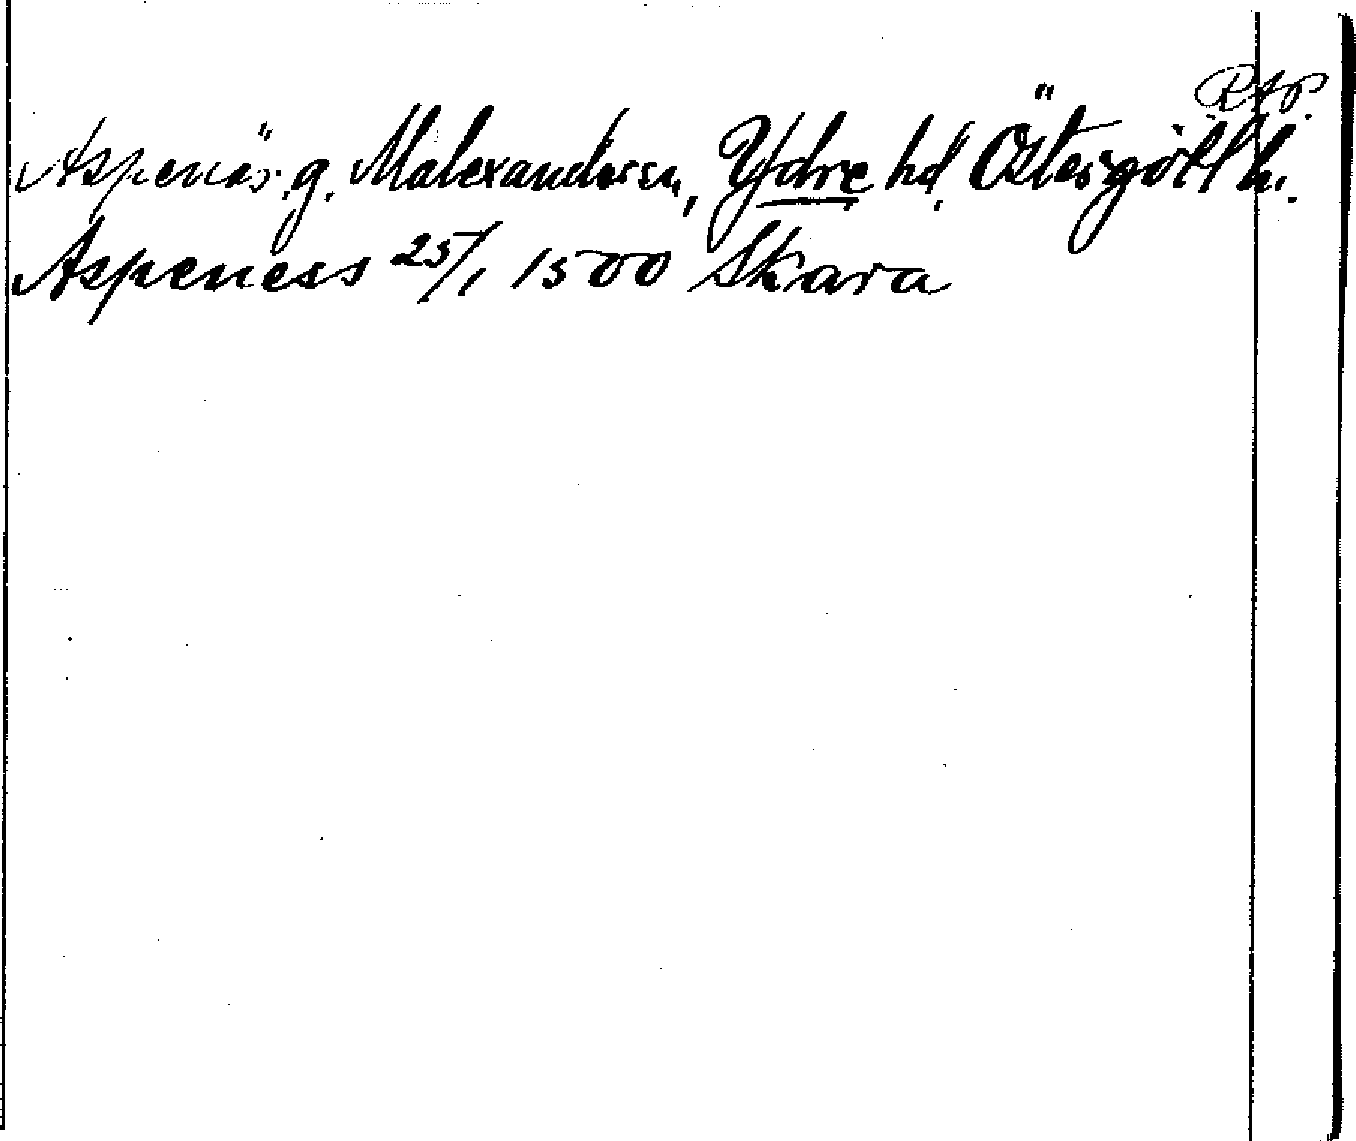 RAp
Aspenäs g. Malexanders sn, Ydre hd, Östergötl l.
Aspeness 25/1 1500 Skara